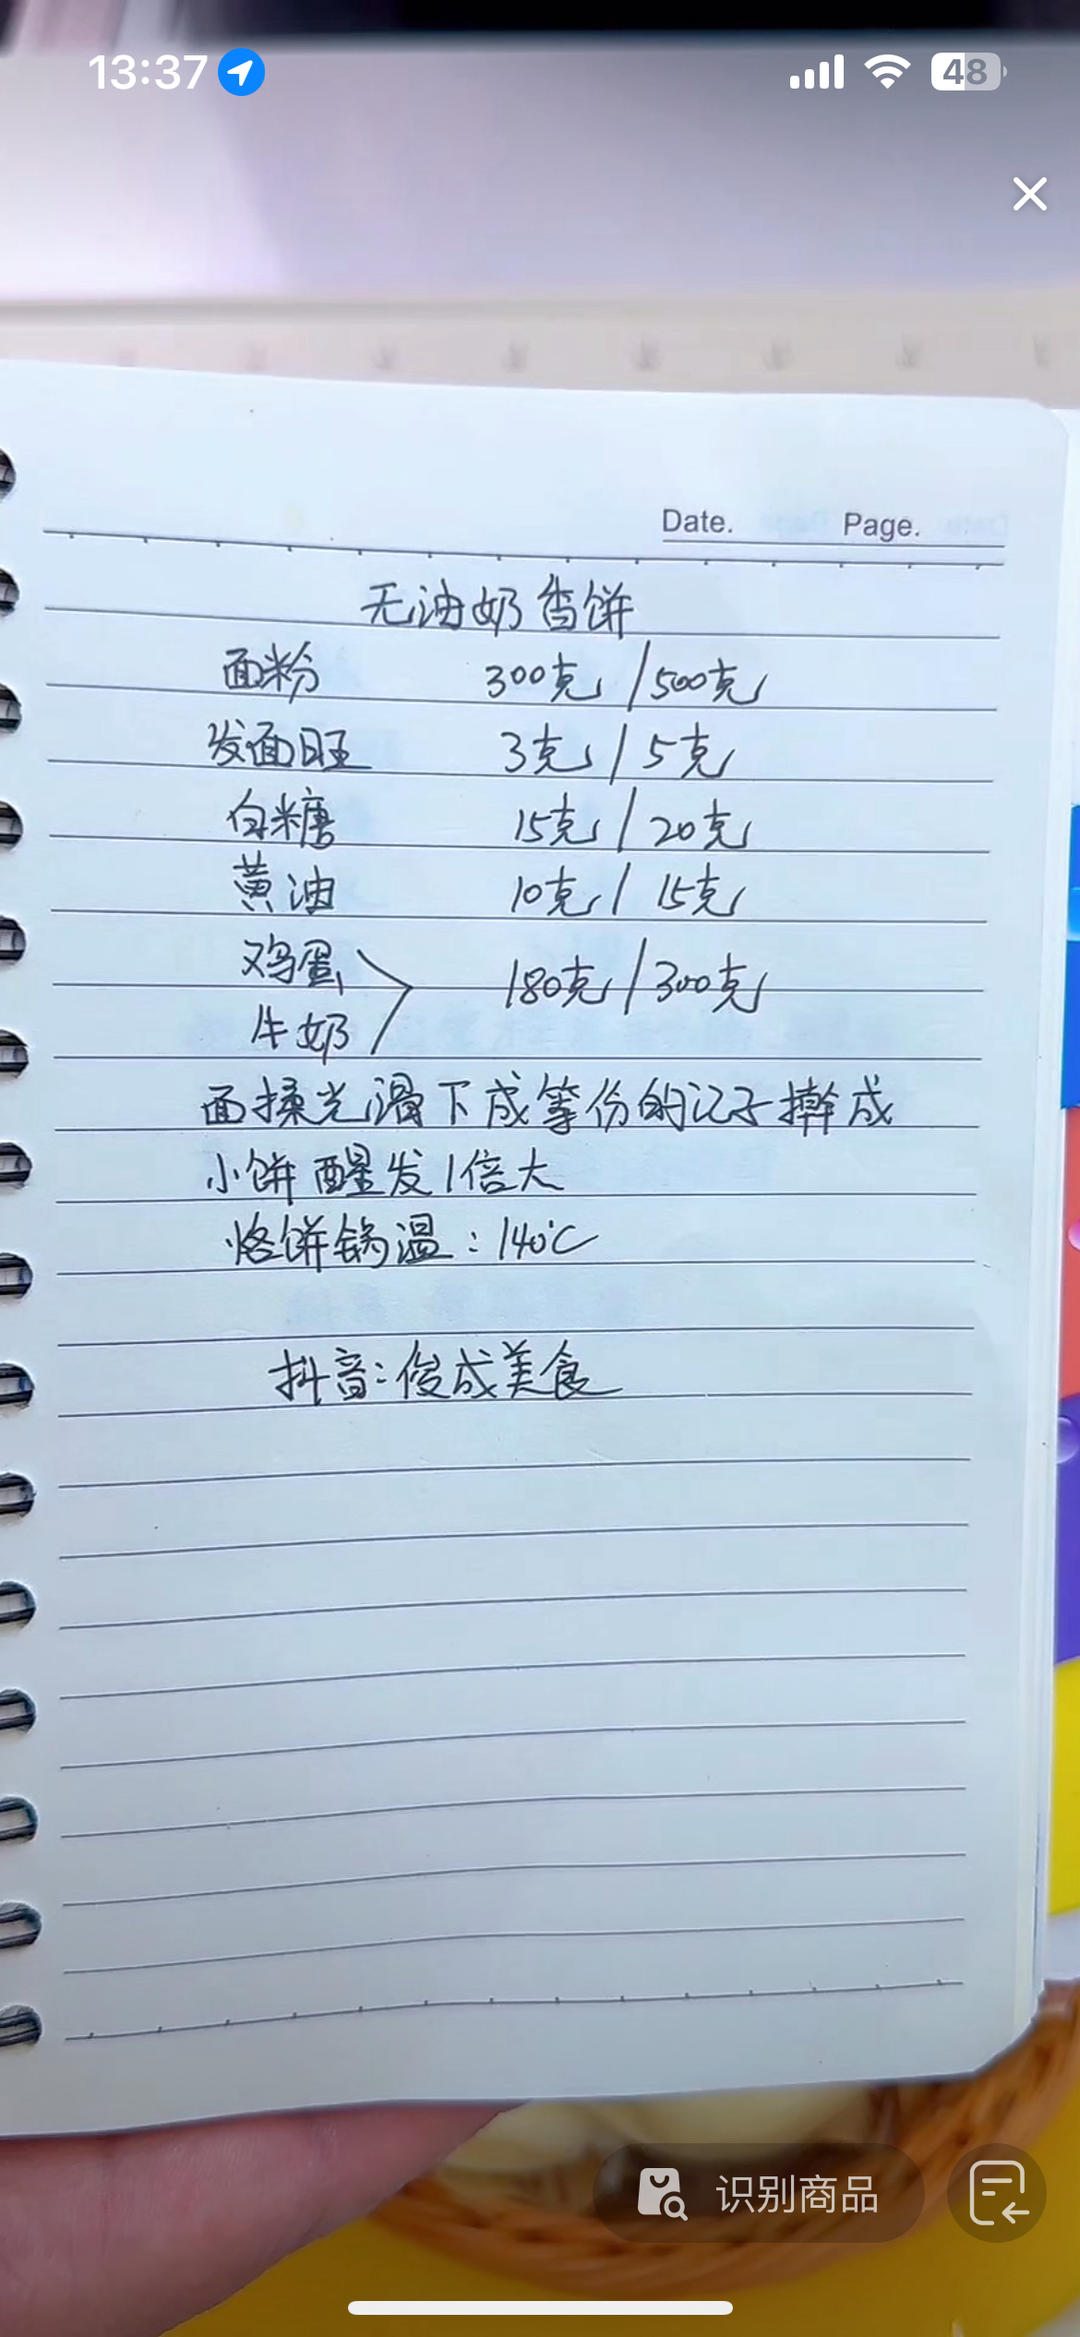 13:37
48
Date. Page.
无油奶香饼
面粉 300克/500克
发面旺 3克/5克
白糖 15克/20克
黄油 10克/15克
鸡蛋
牛奶 180克/300克
面揉光滑下成等份的记子擀成
小饼醒发1倍大
烙饼锅温:140℃
抖音:俊成美食
识别商品